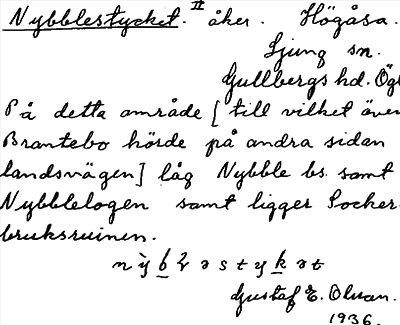 Nybblestycket. II åker. Högåsa.
Ljung sn.
Gullbergs hd. Ög
På detta område [till vilket även
Brantebo hörde på andra sidan
landsvägen] låg Nybble bs. samt
Nybblelogen samt ligger Socker-
bruksruinen.
Gustaf E. Olsson.
1936.